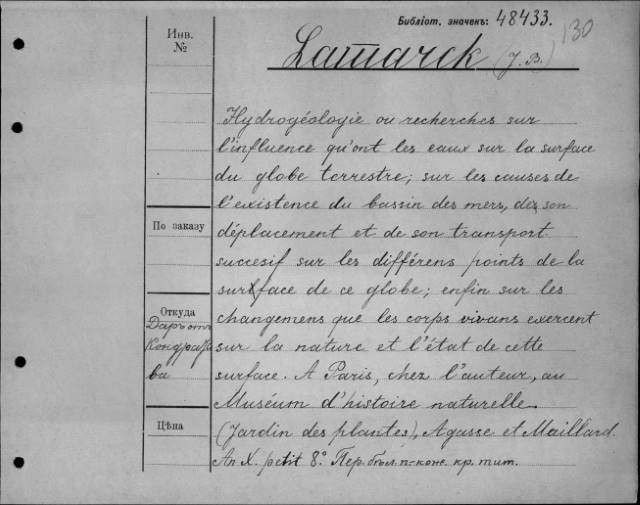 Библіот. значекъ: 48433.
130
Инв.
№
Lamarck (J. B.)
Hydrogéologie ou recherches sur
l'influence qu'ont les eaux sur la surface
du globe terrestre; sur les causes de
l'existence du bassin des mers, de son
По заказу
déplacement et de son transport
succesif sur les différens points de la
surface de ce globe; enfin sur les
Откуда
Даръ отъ
Кондрать
ва
changemens que les corps vivans exercent
sur la nature et l'état de cette
surface. A Paris, chez l'auteur, au
Muséum d'histoire naturelle
Цѣна
(Jardin des plantes), Agasse et Maillard.
An X. petit 8° Пер. бѣл. п-кож. кр. тит.